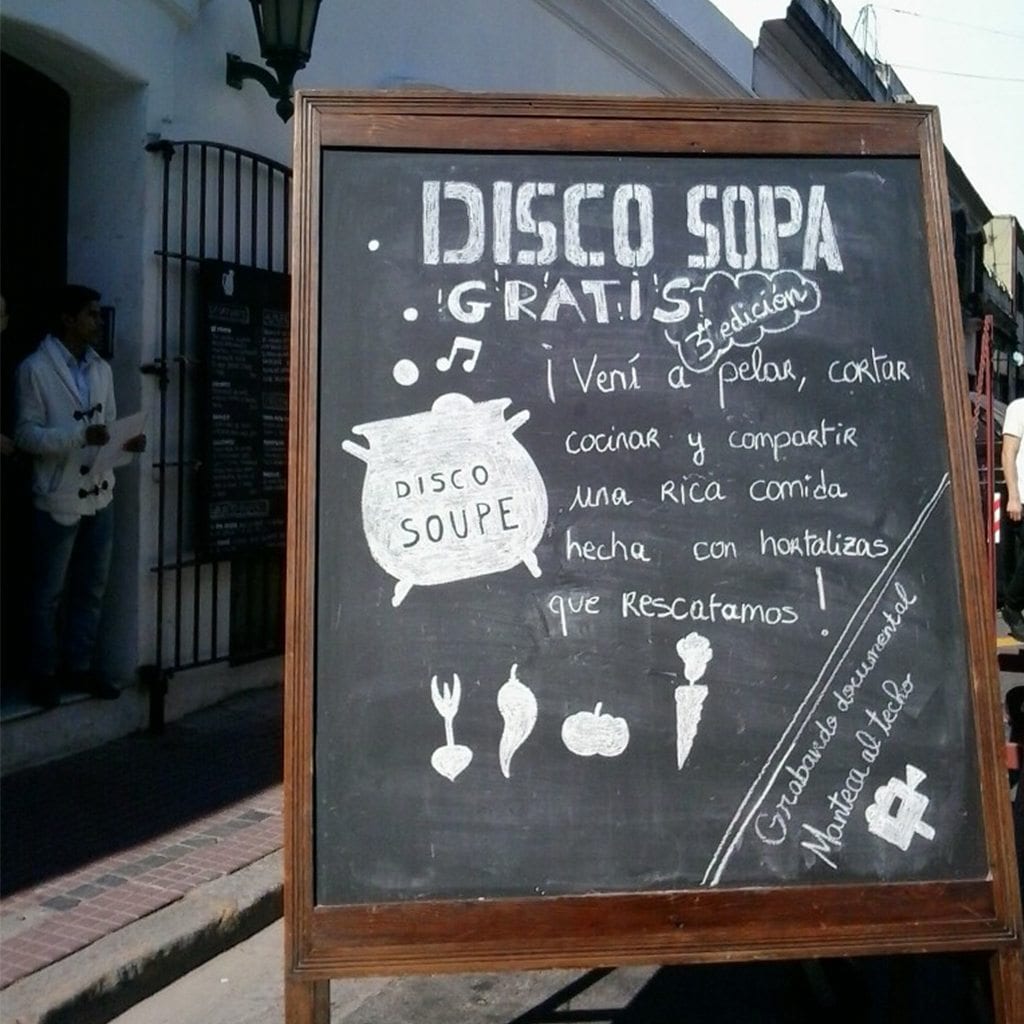 DISCO SOPA
¡GRATIS!
3ra edición
¡Vení a pelar, cortar
cocinar y compartir
una rica comida
hecha con hortalizas
que rescatamos!
DISCO
SOUPE
Grabando documental
Manteca al techo